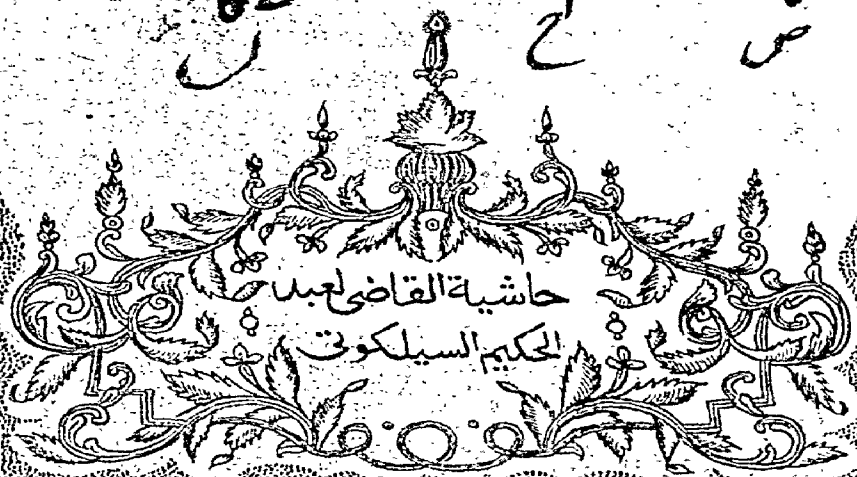 ص ح ل
حاشية القاضى لعبد
الحكيم السيلكوتى